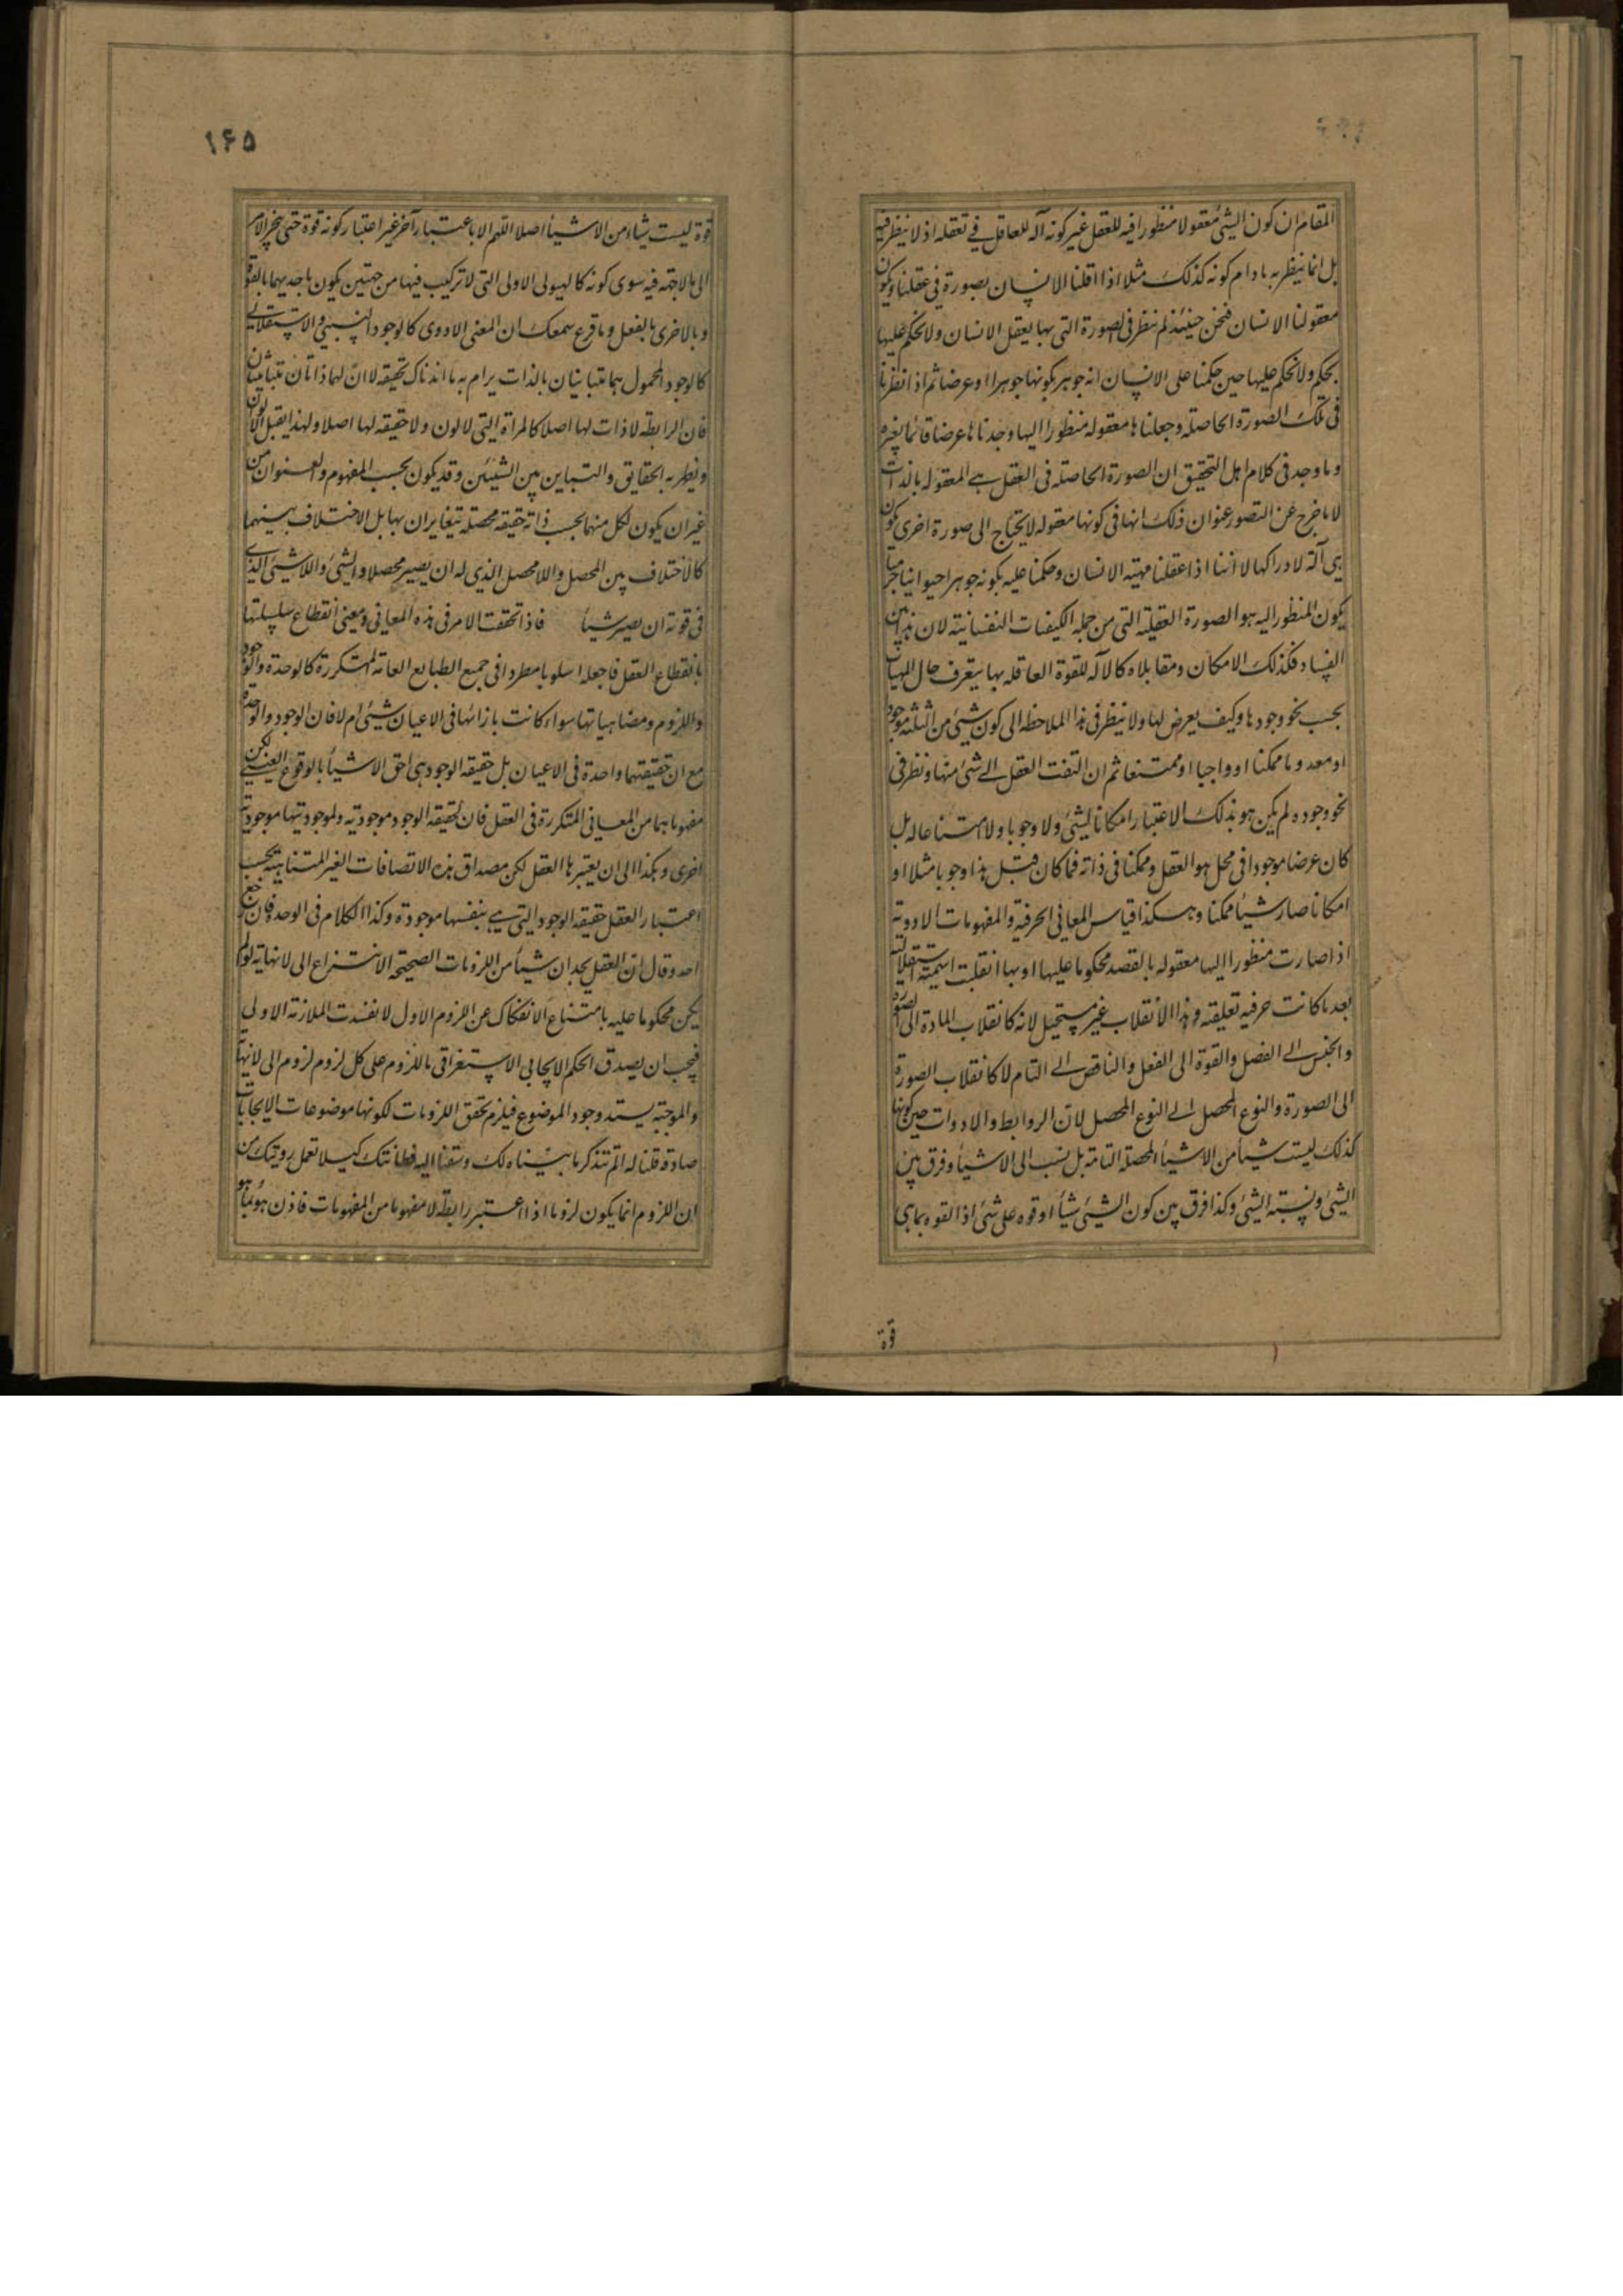 المقام ان كون الشیٔ معقولا منظورا فیه للعقل غیر كونه آلة للعاقل فی تعقله اذ لا ینظر فیه
بل انما ینظر به ما دام كونه كذلك مثلا اذا عقلنا الانسان بصورة فی عقلنا ویكون
معقولنا الانسان فنحن حینئذ لم ننظر فی الصورة التی بها یعقل الانسان ولا نحكم علیها
بحكم ولا نحكم علیها حین حكمنا علی الانسان انه جوهر بكونها جوهرا او عرضا ثم اذا نظرنا
فی تلك الصورة الحاصلة وجعلناها معقولة منظورا الیها وجدناها عرضا قائما بغیره
وما وجد فی كلام اهل التحقیق ان الصورة الحاصلة فی العقل هی المعقولة بالذات
لا ما خرج عن التصور عنوان ذلك انها فی كونها معقولة لا یحتاج الی صورة اخری یكون
هی آلة لادراكها لا اننا اذا عقلنا مهیة الانسان وحكمنا علیه بكونه جوهرا حیوانیا جرمیا
یكون المنظور الیه هو الصورة العقلیة التی من جملة الكیفیات النفسانیة لان هذا بین
الفساد فكذلك الامكان ومقابلاه كالآلة للقوة العاقلة بها یتعرف حال المهیات
بحسب نحو وجودها وكیف یعرض لها ولا ینظر فی هذا الملاحظة الی كون شیٔ من الثلثة موجودا
او معدوما ممكنا او واجبا او ممتنعا ثم ان التفت العقل الی شیٔ منها ونظر فی
نحو وجوده لم یكن هو بذلك الاعتبار امكانا لشیٔ ولا وجوبا ولا امتناعا له بل
كان عرضا موجودا فی محل هو العقل وممكنا فی ذاته فما كان قبل هذا وجوبا مثلا او
امكانا صار شیأ ممكنا وهكذا قیاس المعانی الحرفیة والمفهومات الادویة
اذا صارت منظورا الیها معقولة بالقصد محكوما علیها او بها انقلبت اسمیة استقلالیة
بعد ما كانت حرفیة تعلیقیة وهذا الانقلاب غیر مستحیل لانه كانقلاب المادة الی الصورة
والجنس الی الفصل والقوة الی الفعل والناقص الی التام لا كانقلاب الصورة
الی الصورة والنوع المحصل الی النوع المحصل لان الروابط والادوات حین كونها
كذلك لیست شیأ من الاشیأ المحصلة التامة بل نسب الی الاشیأ وفرق بین
الشیٔ ونسبة الشیٔ وكذا فرق بین كون الشیٔ شیأ او قوة علی شیٔ اذ القوة بما هی
قوة
۱۶۵
قوة لیست شیأ من الاشیأ اصلا اللهم الا باعتبار آخر غیر اعتبار كونه قوة حتی ینجر الامر
الی ما لا جهة فیه سوی كونه كالهیولی الاولی التی لا تركیب فیها من جهتین یكون باحدیهما بالقوة
وبالاخری بالفعل وما قرع سمعك ان المعنی الادوی كالوجود النسبی والاستقلالی
كالوجود المحمول هما متباینان بالذات یرام به ما افدناك تحقیقه لا ان لهما ذاتان متباینتان
فان الرابطة لا ذات لها اصلا كالمرآة التی لا لون ولا حقیقة لها اصلا ولهذا یقبل الالوان
ویظهر به الحقایق والتباین بین الشیئین وقد یكون بحسب المفهوم والعنوان من
غیر ان یكون لكل منهما بحسب ذاته حقیقة محصلة یتغایران بها بل الاختلاف بینهما
كالاختلاف بین المحصل واللامحصل الذی له ان یصیر محصلا والشیٔ واللاشیٔ الذی
فی قوته ان یصیر شیأ فاذا تحققت الامر فی هذه المعانی ومعنی انقطاع سلسلتها
بانقطاع العقل فاجعله اسلوبا مطردا فی جمیع الطبایع العامة المتكررة كالوحدة والوجود
واللزوم ومضاهیاتها سواء كانت بازائها فی الاعیان شیٔ ام لا فان الوجود والوحدة
مع ان حقیقتهما واحدة فی الاعیان بل حقیقة الوجود هی احق الاشیأ بالوقوع العینی لكن
مفهوماهما من المعانی المتكررة فی العقل فان لحقیقة الوجود موجودیة ولموجودیتها موجودیة
اخری وهكذا الی ان یعتبرها العقل لكن مصداق هذه الاتصافات الغیر المتناهیة بحسب
اعتبار العقل حقیقة الوجود التی هی بنفسها موجودة وكذا الكلام فی الوحدة فان رجع
احد وقال ان العقل یجد ان شیأ من اللزومات الصحیحة الانتزاع الی لا نهایة لو لم
یكن محكوما علیه بامتناع الانفكاك عن اللزوم الاول لانفسدت الملازمة الاولی
فیجب ان یصدق الحكم الایجابی الاستغراقی باللزوم علی كل لزوم لزوم الی لا نهایة
والموجبة یستدعی وجود الموضوع فیلزم تحقق اللزومات لكونها موضوعات الایجابات
صادقة قلنا له الم تتذكر ما بیناه لك وسقنا الیه فطانتك كیلا تعمل رویتك من
ان اللزوم انما یكون لزوما اذا اعتبر رابطة لا مفهوما من المفهومات فاذن هو بما هو